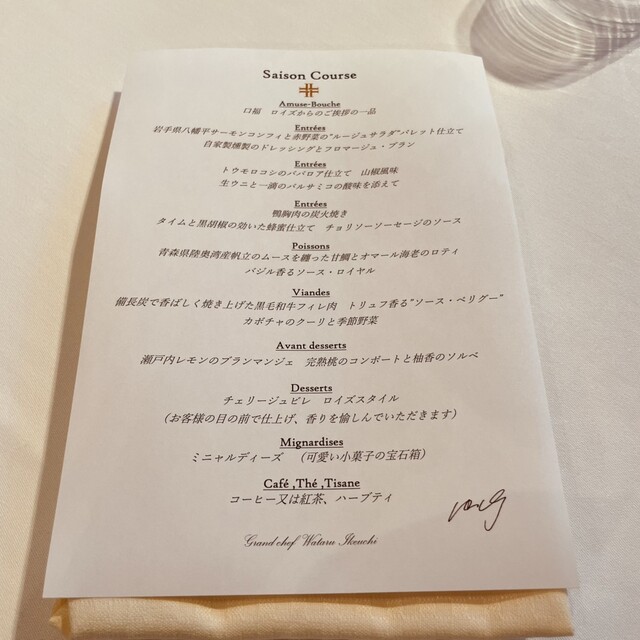 Saison Course
Amuse-Bouche
口福　ロイズからのご挨拶の一品
Entrées
岩手県八幡平サーモンコンフィと赤野菜の"ルージュサラダ"パレット仕立て
自家製燻製のドレッシングとフロマージュ・ブラン
Entrées
トウモロコシのババロア仕立て　山椒風味
生ウニと一滴のバルサミコの酸味を添えて
Entrées
鴨胸肉の炭火焼き
タイムと黒胡椒の効いた蜂蜜仕立て　チョリソーソーセージのソース
Poissons
青森県陸奥湾産帆立のムースを纏った甘鯛とオマール海老のロティ
バジル香るソース・ロイヤル
Viandes
備長炭で香ばしく焼き上げた黒毛和牛フィレ肉　トリュフ香る"ソース・ペリグー"
カボチャのクーリと季節野菜
Avant desserts
瀬戸内レモンのブランマンジェ　完熟桃のコンポートと柚香のソルベ
Desserts
チェリージュビレ　ロイズスタイル
（お客様の目の前で仕上げ、香りを愉しんでいただきます）
Mignardises
ミニャルディーズ　（可愛い小菓子の宝石箱）
Café ,Thé ,Tisane
コーヒー又は紅茶、ハーブティ
Grand chef Wataru Ikeuchi